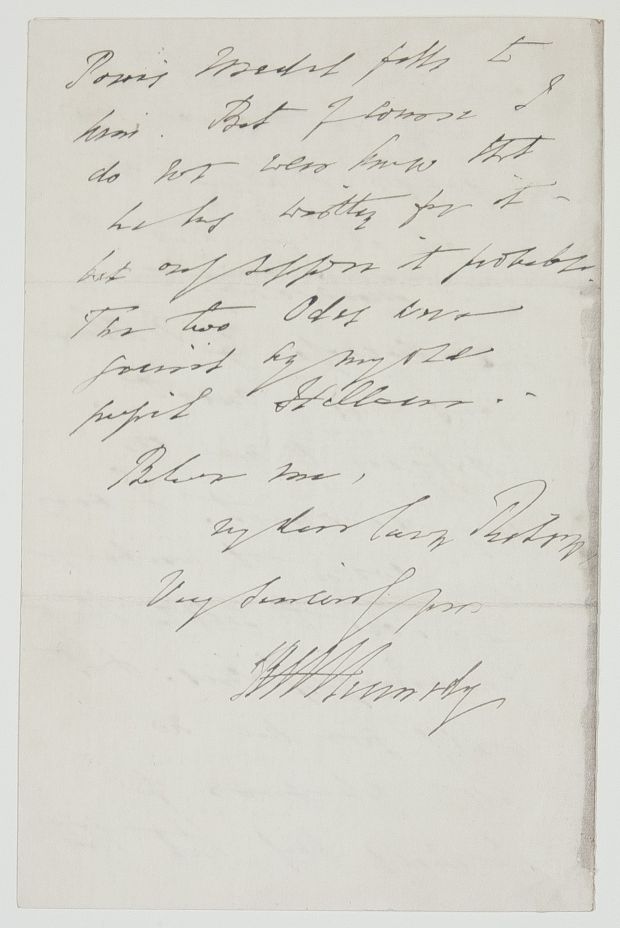 Powis Medal falls to
him. But of course I
do not even know that
he has written for it –
but only suppose it probable.
The two Odes were
gained by my old
pupil
Believe me,
my dear Lady
Very sincerely yours
Kennedy